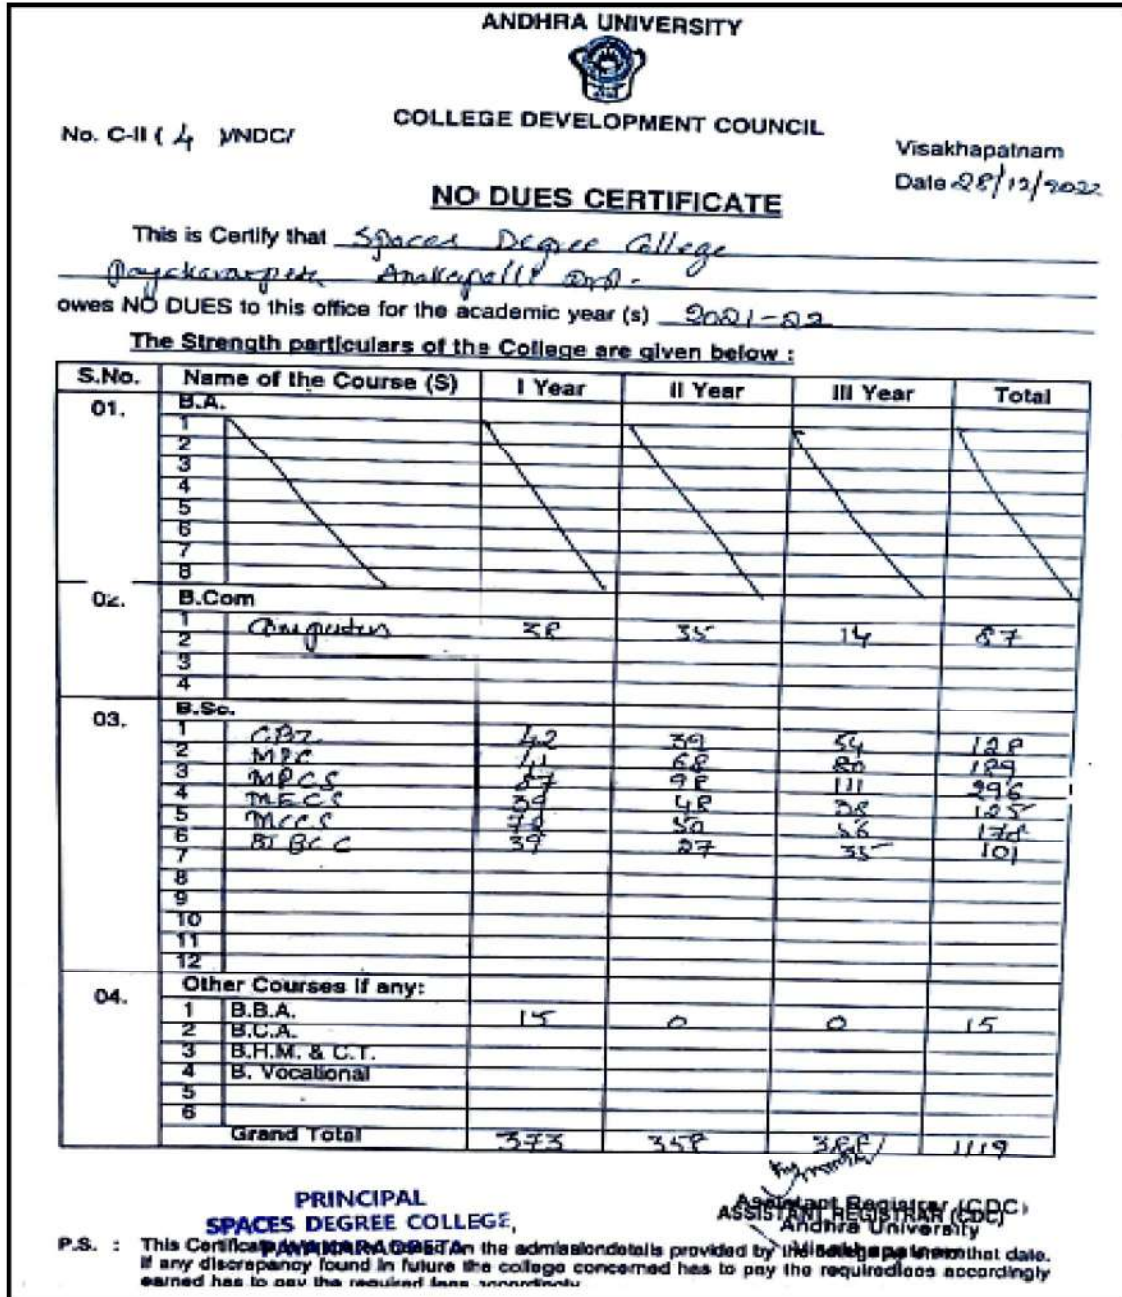 ANDHRA UNIVERSITY
COLLEGE DEVELOPMENT COUNCIL
No. C-II ( 4 )/NDC/
Visakhapatnam
Date 28/12/2022
NO DUES CERTIFICATE
This is Certify that Spaces Degree College
Payakaraopeta Anakapalli
owes NO DUES to this office for the academic year (s) 2021-22
The Strength particulars of the College are given below :
S.No. Name of the Course (S) I Year II Year III Year Total
01. B.A.
1
2
3
4
5
6
7
8
02. B.Com
1 Computers 38 35 14 87
2
3
4
03. B.Sc.
1 CBZ 42 32 54 128
2 MPC 41 68 80 189
3 MPCS 87 98 111 296
4 MECS 39 48 38 125
5 MCCS 72 50 56 178
6 BT BC C 39 27 35 101
7
8
9
10
11
12
04. Other Courses if any:
1 B.B.A. 15 0 0 15
2 B.C.A.
3 B.H.M. & C.T.
4 B. Vocational
5
6
Grand Total 373 358 388 1119
PRINCIPAL
SPACES DEGREE COLLEGE,
PAYAKARAOPETA
Assistant Registrar (CDC)
ASSISTANT REGISTRAR (CDC)
Andhra University
Visakhapatnam
P.S. : This Certificate on the admissiondetails provided by the that date.
If any discrepancy found in future the college concerned has to pay the requiredfees accordingly
earned has to pay the required fees accordingly